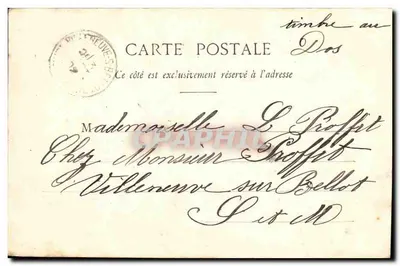 timbre au
Dos
CARTE POSTALE
Ce côté est exclusivement réservé à l'adresse
Mademoiselle L Proffit
Chez Monsieur Proffit
Villeneuve sur Bellot
S et M
CPAPHIL